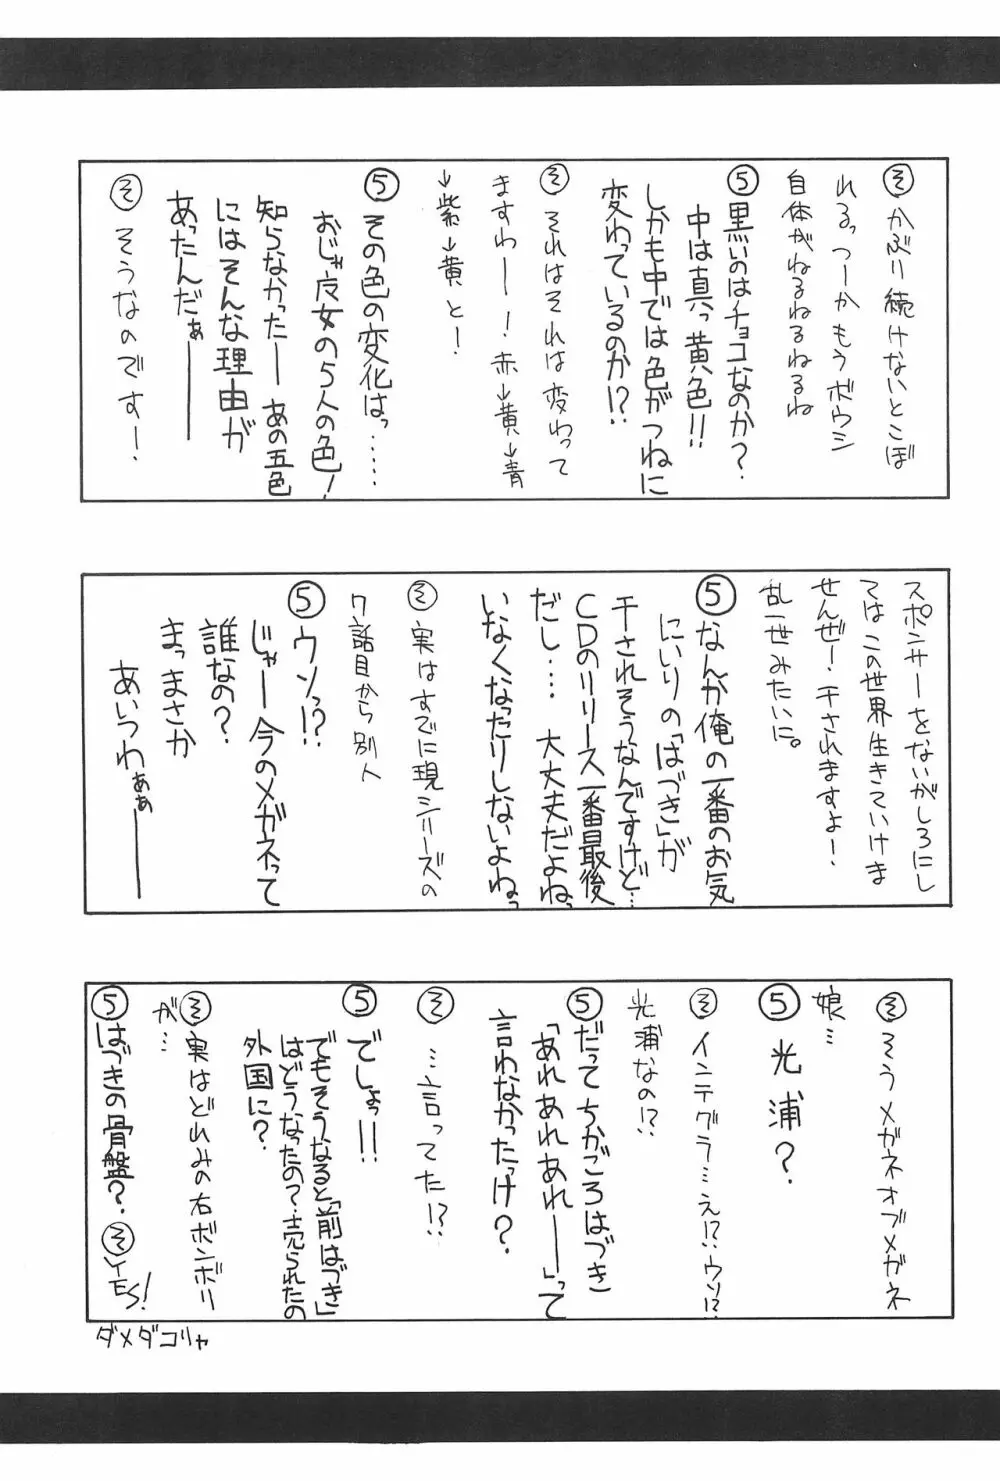 ㋞かぶり続けないとこぼ
れるっつーかもうボウシ
自体がねるねるねるね
⑤黒いのはチョコなのか?
中は真っ黄色!!
しかも中では色がつねに
変わっているのか!?
㋞それはそれは変わって
ますわー!赤→黄→青
→紫→黄と!
⑤その色の変化はっ……
おじゃ魔女の5人の色!
知らなかったーあの五色
にはそんな理由が
あったんだぁー
㋞そうなのですー!
スポンサーをないがしろにし
てはこの世界生きていけま
せんぜー!干されますよー!
乱一世みたいに。
⑤なんか俺の一番のお気
にいりの「はづき」が
干されそうなんですけど…
CDのリリース一番最後
だし…大丈夫だよねっ
いなくなったりしないよねっ
㋞実はすでに現シリーズの
7話目から別人
⑤ウソっ!?
じゃー今のメガネって
誰なの?
まっまさか
あいつわぁぁー
㋞そうメガネオブメガネ
娘…
⑤光浦?
㋞インテグラ…え!?ウソ!?
光浦なの!?
⑤だってちかごろはづき
「あれあれあれー」って
言わなかったっけ?
㋞…言ってた!?
⑤でしょっ!!
でもそうなると「前はづき」
はどうなったの?売られたの
外国に?
㋞実はどれみの右ボンボリ
が…
⑤はづきの骨盤?
㋞YES!
ダメダコリャ